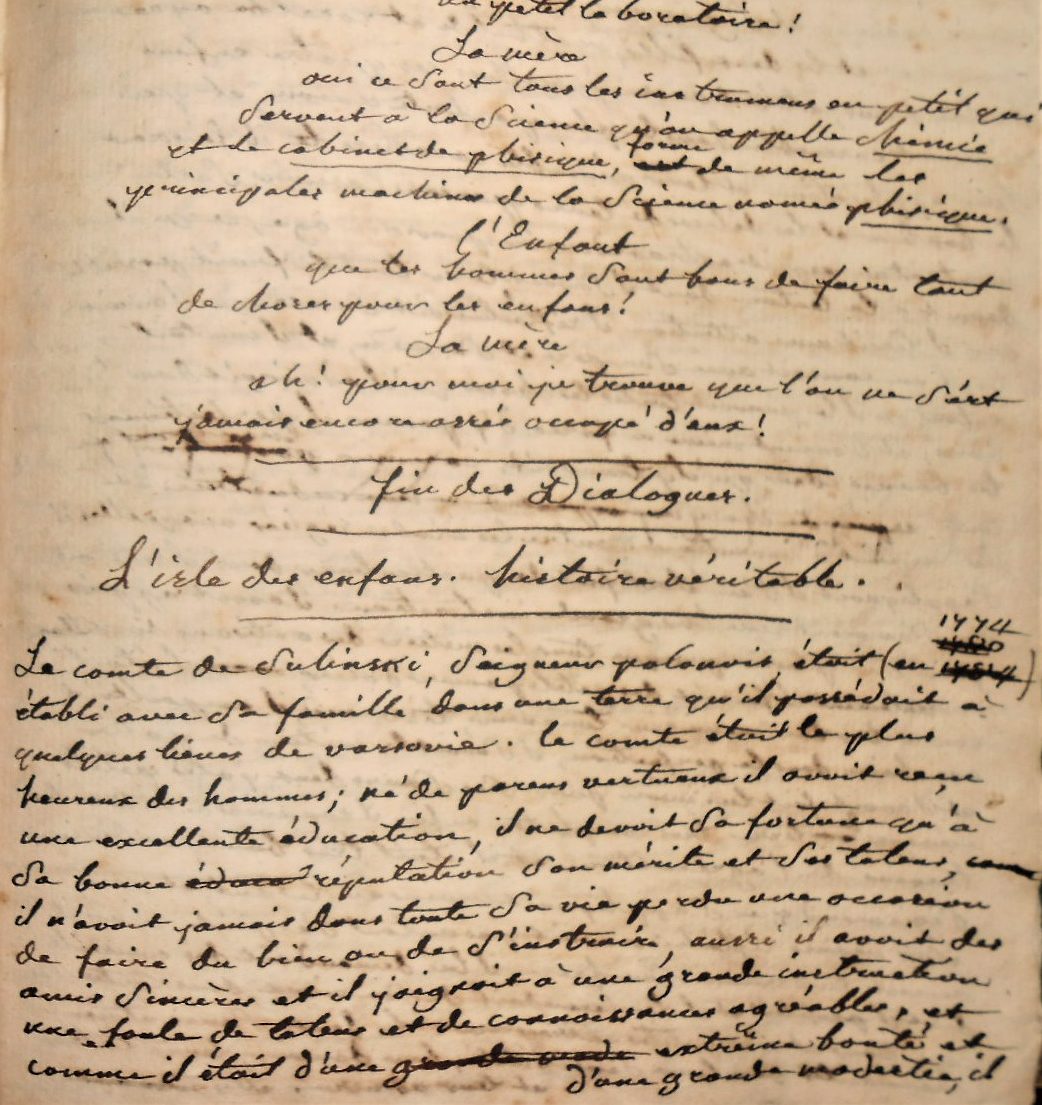 un petit laboratoire!
La mère
oui ce sont tous les instrumens en petit qui
servent à la Science qu'on appelle chimie
et le cabinet de phisique, forme de même les
principales machines de la Science nomée phisique.
l'Enfant
que les hommes sont bons de faire tant
de choses pour les enfans!
La mère
ah! pour moi je trouve que l'on ne s'est
jamais encore assés occupé d'eux!
fin des Dialogues.
L'isle des enfans. histoire véritable.
1774
Le comte de Sulinski, Seigneur polonois, étoit (en
établi avec sa famille dans une terre qu'il possédoit à
quelques lieues de varsovie. le comte étoit le plus
heureux des hommes; né de parens vertueux il avoit reçu
une excellente éducation, il ne devoit sa fortune qu'à
sa bonne réputation, son mérite et ses talens,
il n'avoit jamais dans toute sa vie perdu une occasion
de faire du bien ou de s'instruire, aussi il avoit des
amis sincères et il joignoit à une grande instruction
une foule de talens et de connoissances agréables, et
comme il étoit d'une extrême bonté et
d'une grande modestie, il